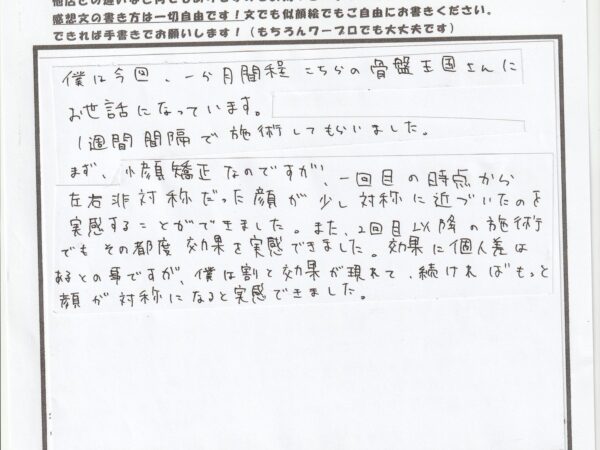 感想文の書き方は一切自由です！文でも似顔絵でもご自由にお書きください。
できれば手書きでお願いします！（もちろんワープロでも大丈夫です）
僕は今回、一か月間程こちらの骨盤王国さんに
お世話になっています。
1週間間隔で施術してもらいました。
まず、小顔矯正なのですが、一回目の時点から
左右非対称だった顔が少し対称に近づいたのを
実感することができました。また、2回目以降の施術
でもその都度効果を実感できました。効果に個人差は
あるとの事ですが、僕は割と効果が現れて、続ければもっと
顔が対称になると実感できました。